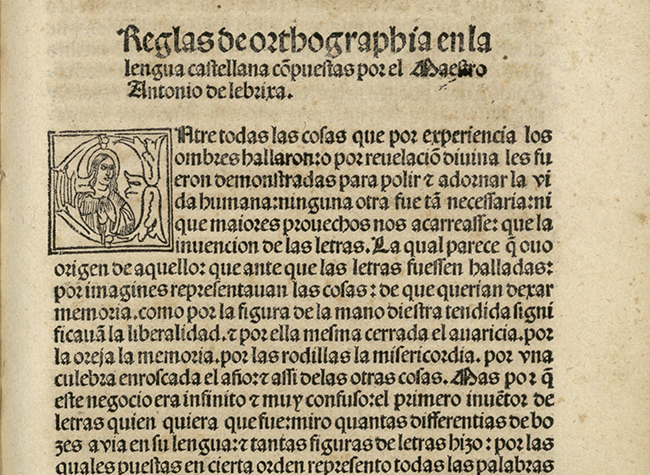 Reglas de orthographia en la
lengua castellana cõpuestas por el Maestro
Antonio de lebrixa.
ENtre todas las cosas que por experiencia los
ombres hallaron: o por reuelaciõ diuina les fu
eron demonstradas para polir ⁊ adornar la vi
da humana: ninguna otra fue tã necessaria: ni
que maiores prouechos nos acarreasse: que la
inuencion de las letras. La qual parece q̃ ouo
origen de aquello: que ante que las letras fuessen halladas:
por imagines representauan las cosas: de que querian dexar
memoria. como por la figura de la mano diestra tendida signi
ficauã la liberalidad. ⁊ por ella mesma cerrada el auaricia. por
la oreja la memoria. por las rodillas la misericordia. por vna
culebra enroscada el año: ⁊ assi delas otras cosas. Mas por q̃
este negocio era infinito ⁊ muy confuso: el primero inuẽtor de
letras quien quiera que fue: miro quantas differentias de bo
zes auia en su lengua: ⁊ tantas figuras de letras hizo: por las
quales puestas en cierta orden represento todas las palabras